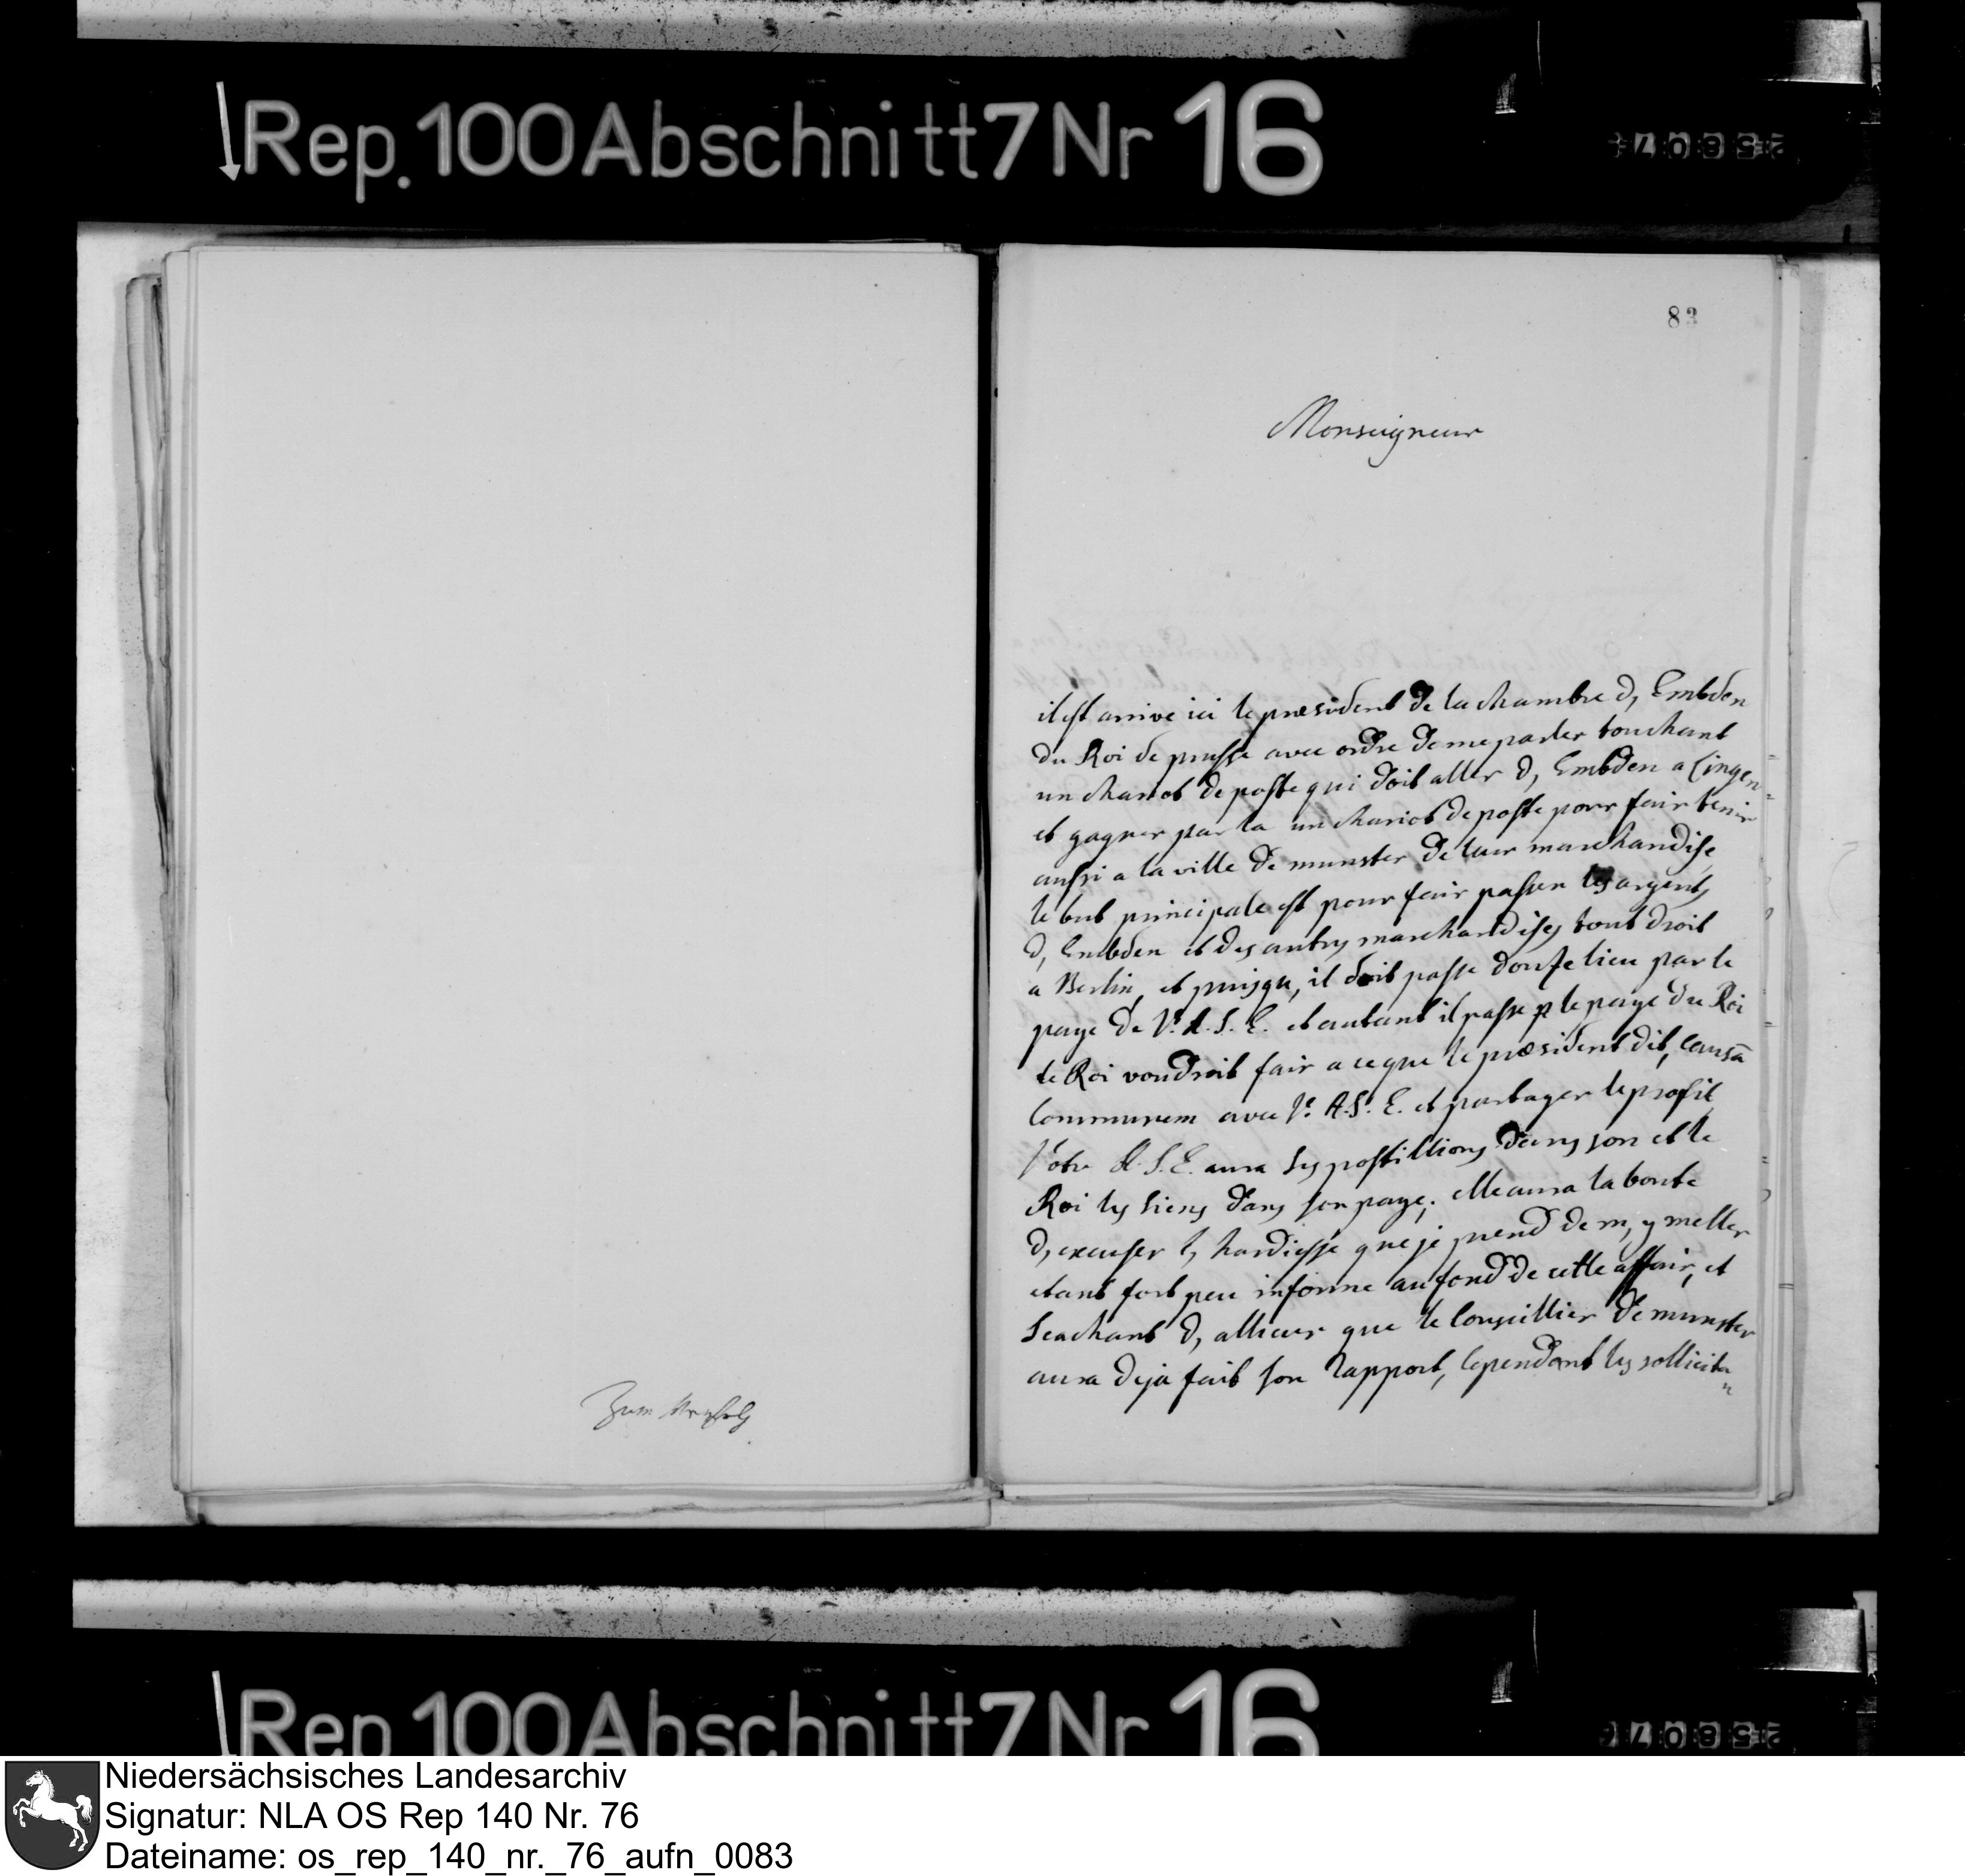 Rep. 100 Abschnitt 7 Nr 16
Zum
83
Monseigneur
il est arrive ici le præsident de la chambre d, Embden
du Roi de prusse avec ordre de me parler touchant
un chariot de poste qui doit aller d, Embden a Lingen
et gagner par la un chariot de poste pour fair tenir
aussi a la ville de munster de leur marchandise,
le but principale est pour fair passer les argents
d, Embden et des autres marchandises tout droit
a Berlin, et puisqu, il doit passe douse lieu par le
paye de V. A. S. E. et autant il passe p le paye du Roi
le Roi voudroit fair a ce que le præsident dit, causā
communem avec V. A. S. E. et partager le profit,
Votre A. S. E. aura ses postillions dans son et le
Roi les siens dans son paye; elle aura la bonte
d, excuser l, hardiesse que je prend de m, y meller
etant fort peu informe au fond de cette affair, et
Seachant d, allieur que le Conseillier de munster
aura deja fait son rapport, cependant les sollicita
Rep. 100 Abschnitt 7 Nr 16
Niedersächsisches Landesarchiv
Signatur: NLA OS Rep 140 Nr. 76
Dateiname: os_rep_140_nr._76_aufn_0083